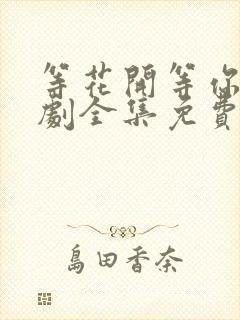 等花開等你
劇全集免費
島田香奈